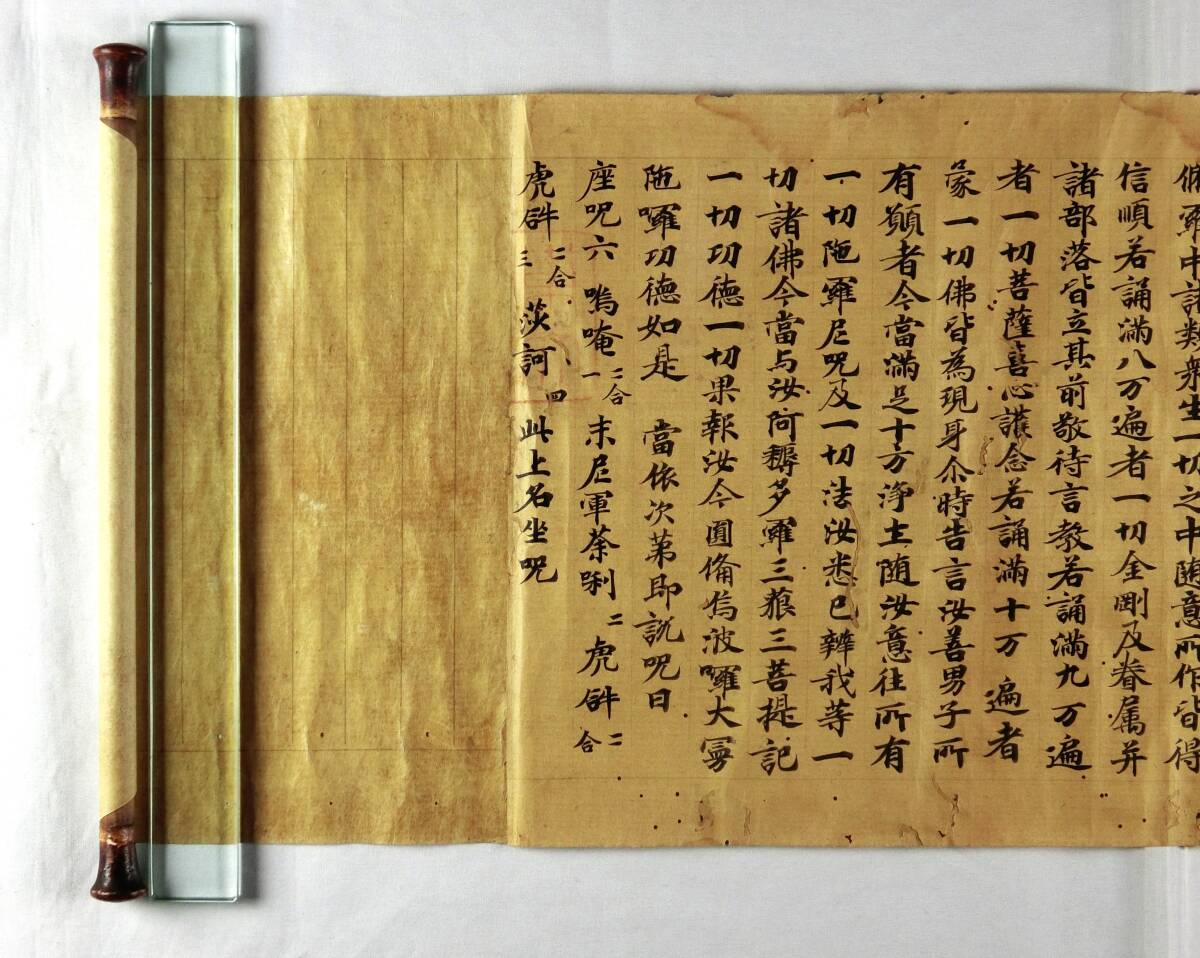 脩羅中諸類衆生一切之中随意所作皆得
信順若誦滿八万遍者一切金剛及眷属并
諸部落皆立其前敬待言教若誦滿九万遍
者一切菩薩喜心護念若誦滿十万遍者
蒙一切佛皆為現身尒時告言汝善男子所
有願者今當滿足十方浄土随汝意往所有
一切陁羅尼呪及一切法汝悉已辦我等一
切諸佛今當与汝阿耨多羅三藐三菩提記
一切功徳一切果報汝今圓俻烏波囉大
陁囉功徳如是 當依次第即説呪曰
座呪六 嗚唵二合一 末尼軍荼唎二 虎𤙖二合
虎𤙖二合三 莎訶四 此上名坐呪